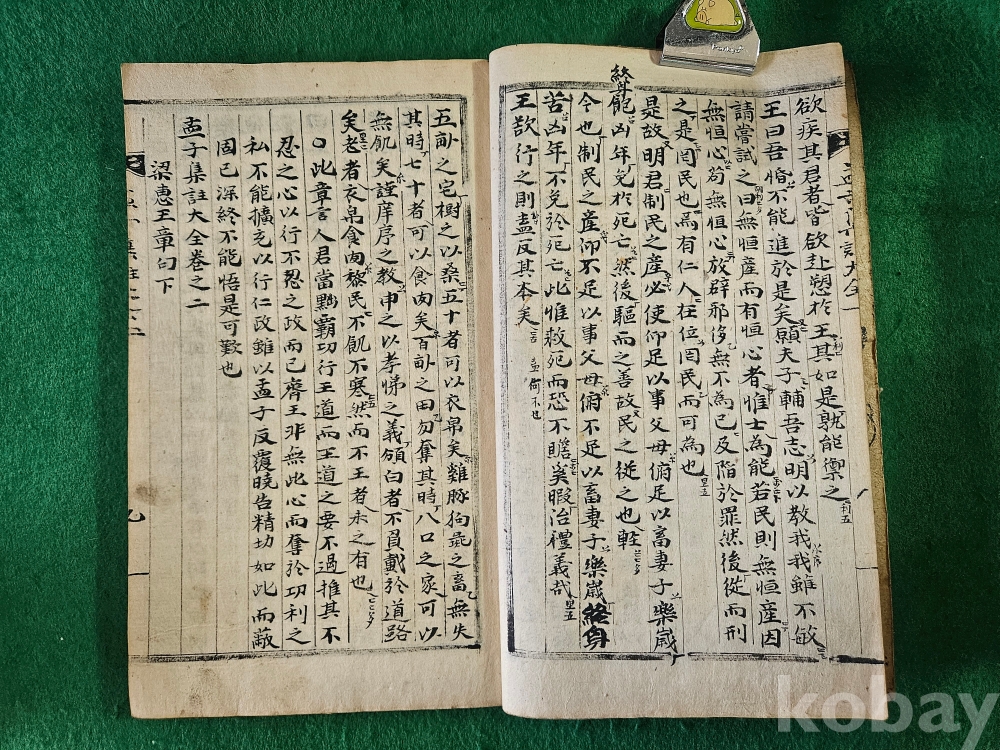 欲疾其君者皆欲赴愬於王其如是孰能禦之
王曰吾惛不能進於是矣願夫子輔吾志明以教我我雖不敏
請嘗試之曰無恒産而有恒心者惟士為能若民則無恒産因
無恒心苟無恒心放辟邪侈無不為已及陷於罪然後從而刑
之是罔民也焉有仁人在位罔民而可為也
是故明君制民之産必使仰足以事父母俯足以畜妻子樂歲
終身飽凶年免於死亡然後驅而之善故民之從之也輕
今也制民之産仰不足以事父母俯不足以畜妻子樂歲終身
苦凶年不免於死亡此惟救死而恐不贍奚暇治禮義哉
王欲行之則盍反其本矣
盍何不也
五畝之宅樹之以桑五十者可以衣帛矣雞豚狗彘之畜無失
其時七十者可以食肉矣百畝之田勿奪其時八口之家可以
無飢矣謹庠序之教申之以孝悌之義頒白者不負戴於道路
矣老者衣帛食肉黎民不飢不寒然而不王者未之有也
○此章言人君當黜霸功行王道而王道之要不過推其不
忍之心以行不忍之政而已齊王非無此心而奪於功利之
私不能擴充以行仁政雖以孟子反覆曉告精切如此而蔽
固已深終不能悟是可歎也
孟子集註大全卷之二
梁惠王章句下
kobay